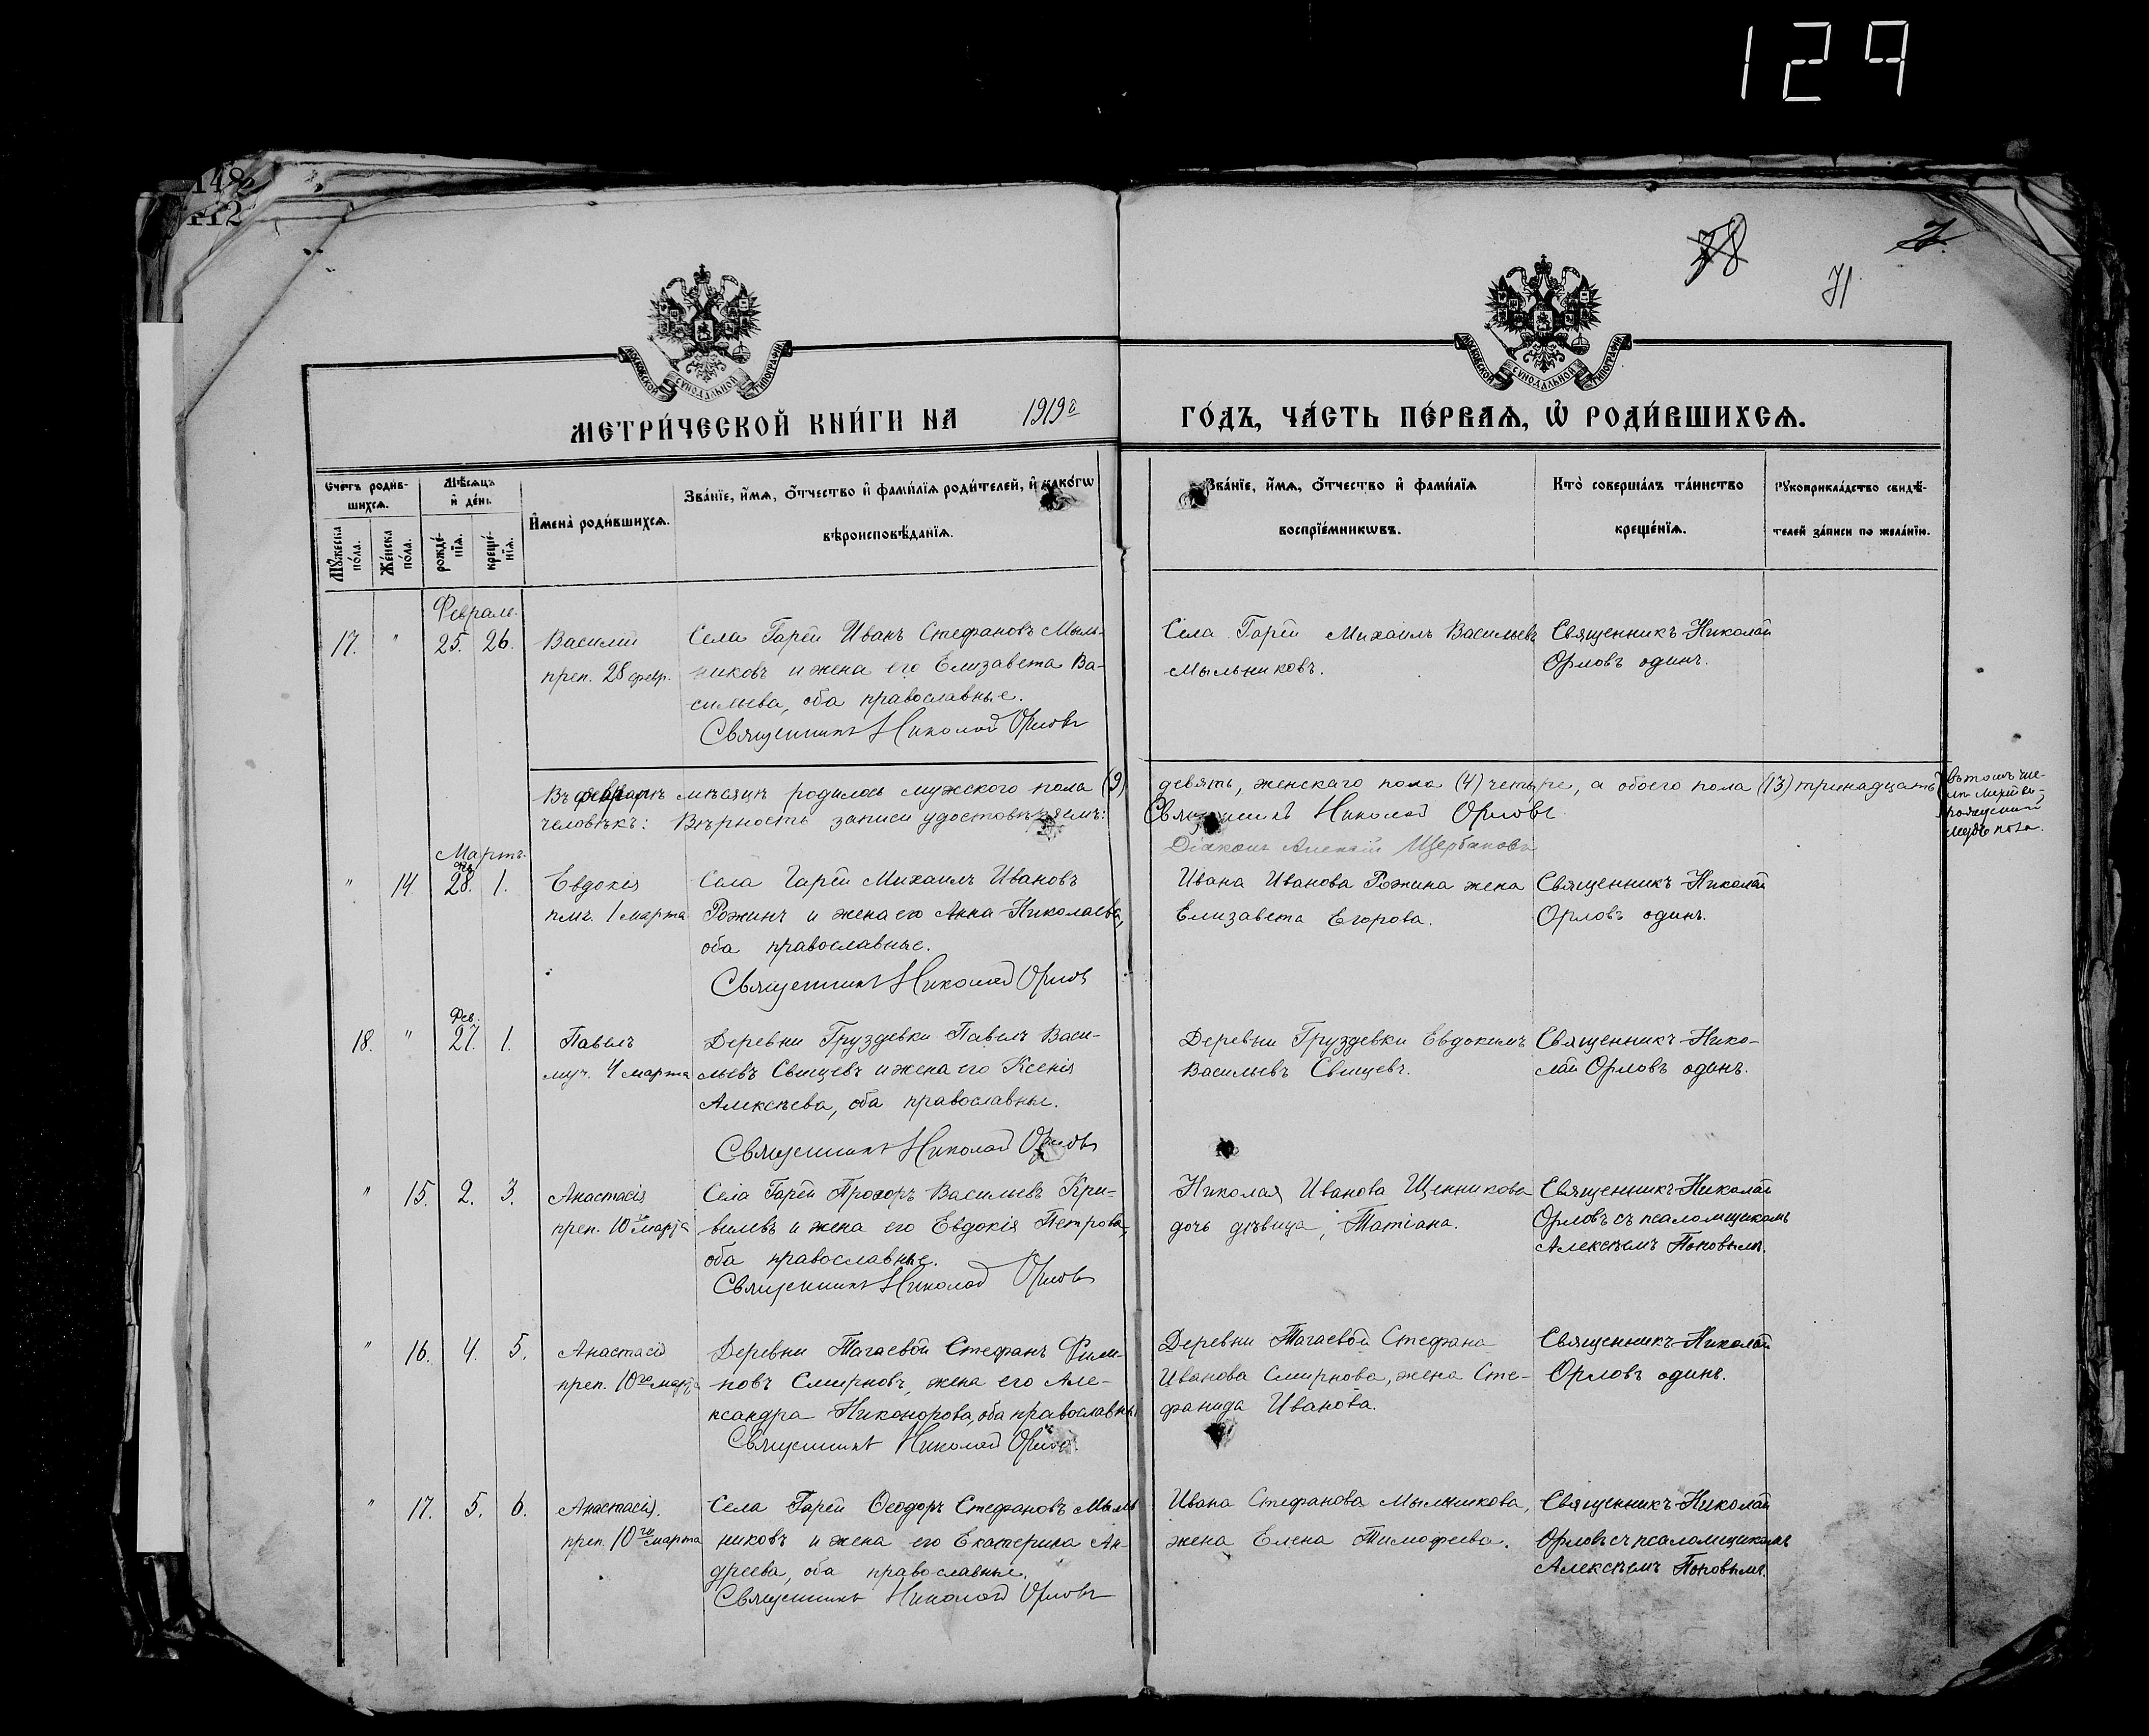 129
148
112
78
7.
71
МОСКОВСКОЙ СѴНОДАЛЬНОЙ ТИПОГРАФІИ
МОСКОВСКОЙ СѴНОДАЛЬНОЙ ТИПОГРАФІИ
МЕТРИ́ЧЕСКОЙ КНИ́ГИ НА 1919 г ГО́ДЪ, ЧА́СТЬ ПЕ́РВАѦ, Ѽ РОДИ́ВШИХСѦ.
Счетъ роди́в-
шихсѧ.
Мꙋ́жеска по́ла.
Же́нска по́ла.
Мѣ́сѧцъ
и҆ де́нь.
рожде́-
нїѧ.
креще́-
нїѧ.
И҆мена̀ роди́вшихсѧ.
Зва́нїе, и҆́мѧ, ѻ҆́тчество и҆ фами́лїѧ роди́телей, и҆ како́гѡ
вѣроисповѣ́данїѧ.
Зва́нїе, и҆́мѧ, ѻ҆́тчество и҆ фами́лїѧ
воспрїе́мникѡвъ.
Кто̀ соверша́лъ та́инство
креще́нїѧ.
Рꙋкоприкла́дство свидѣ́-
телей за́писи по жела́нїю.
Феврале.
17. " 25. 26. Василій
преп. 28 февр.
Села Гарей Иванъ Стефановъ Мыль-
никовъ и жена его Елизавета Ва-
сильева, оба православные.
Священникъ Николай Орловъ
Села Гарей Михаилъ Васильевъ
Мыльниковъ.
Священникъ Николай
Орловъ одинъ.
Въ февралѣ мѣсяцѣ родилось мужского пола (9) девять, женскаго пола (4) четыре, а обоего пола (13) тринадцать
человѣкъ: Вѣрность записи удостовѣряемъ: Священникъ Николай Орловъ
Діаконъ Алексій Щербаковъ
въ томъ чи-
рожденный
муж. пола.
Мартъ.
" 14 28. 1. Евдокія
пмч. 1 марта
Села Гарей Михаилъ Ивановъ
Рожинъ и жена его Анна Николаева,
оба православные.
Священникъ Николай Орловъ
Ивана Иванова Рожина жена
Елизавета Егорова.
Священникъ Николай
Орловъ одинъ.
Фев.
18. " 27. 1. Павелъ
муч. 4 марта
Деревни Груздевки Павелъ Васи-
льевъ Свищевъ и жена его Ксенія
Алексѣева, оба православные.
Священникъ Николай Орловъ
Деревни Груздевки Евдокимъ
Васильевъ Свищевъ.
Священникъ Нико-
лай Орловъ одинъ.
" 15. 2. 3. Анастасія
преп. 10го марта
Села Гарей Прохоръ Васильевъ Кри-
вилевъ и жена его Евдокія Петрова,
оба православные.
Священникъ Николай Орловъ
Николая Иванова Щенникова
дочь дѣвица, Татіана.
Священникъ Николай
Орловъ съ псаломщикомъ
Алексѣемъ Поповымъ.
" 16. 4. 5. Анастасія
преп. 10го марта
Деревни Тагаевой Стефанъ Фили-
повъ Смирновъ, жена его Але-
ксандра Никонорова, оба православны
Священникъ Николай Орловъ.
Деревни Тагаевой Стефана
Иванова Смирнова, жена Сте-
фанида Иванова.
Священникъ Николай
Орловъ одинъ.
" 17. 5. 6. Анастасія.
преп. 10го марта
Села Гарей Ѳеодоръ Стефановъ Мыль
никовъ и жена его Екатерина Ан-
дреева, оба православные.
Священникъ Николай Орловъ
Ивана Стефанова Мыльникова,
жена Елена Тимофеева.
Священникъ Николай
Орловъ съ псаломщикомъ
Алексѣемъ Поповымъ.